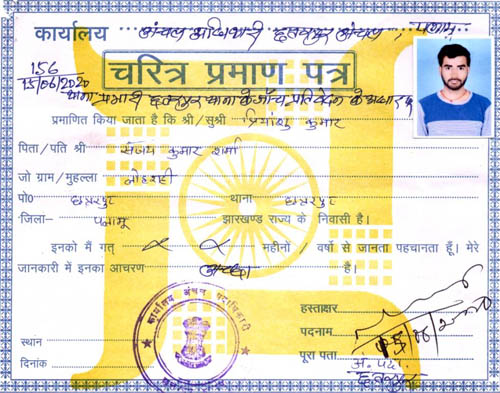 कार्यालय अंचल अधिकारी छतरपुर अंचल, पलामू
156
15/06/2020
चरित्र प्रमाण पत्र
थाना प्रभारी छतरपुर थाना के जाँच प्रतिवेदन के आधार पर
प्रमाणित किया जाता है कि श्री/सुश्री प्रियांशु कुमार
पिता/पति श्री संजय कुमार शर्मा
जो ग्राम/मुहल्ला
पो० छतरपुर थाना छतरपुर
जिला- पलामू झारखण्ड राज्य के निवासी है।
इनको मैं गत् महीनों / वर्षो से जानता पहचानता हूँ। मेरे
जानकारी में इनका आचरण अच्छा है।
हस्ताक्षर
पदनाम
स्थान
पूरा पता
दिनांक
छतरपुर